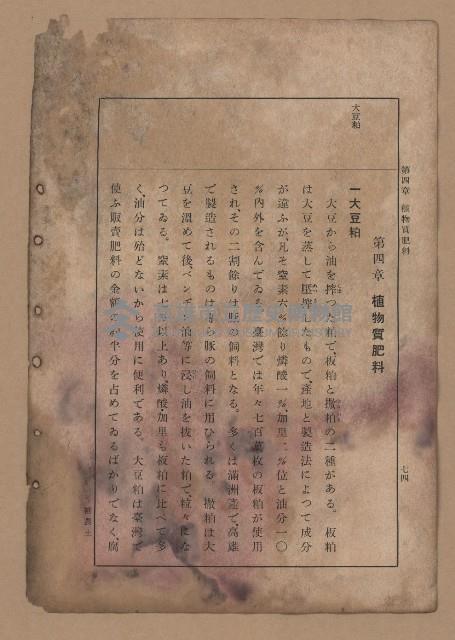 第四章 植物質肥料
七四
大豆粕
第四章 植物質肥料
一大豆粕
大豆から油を搾つた粕で、板粕と撒粕の二種がある。 板粕
は大豆を蒸して壓搾したもので、產地と製造法によつて成分
が違ふが凡そ窒素六%餘り燐酸一%、加里二%位と油分一〇
%內外を含んでゐる。臺灣では年々七百萬枚の板粕が使用
され、その二割餘りは豚の飼料となる。 多くは滿洲產で、高雄
で製造されるものは專ら豚の飼料に用ひられる。 撒粕は大
豆を溫めて後、ベンヂン油等に浸し油を拔いた粕で、粒々にな
つてゐる。 窒素は七%以上あり燐酸、加里も板粕に比べて多
く、油分は殆どないから使用に便利である。 大豆粕は臺灣で
使ふ販賣肥料の金額の約半分を占めてゐるばかりでなく、腐